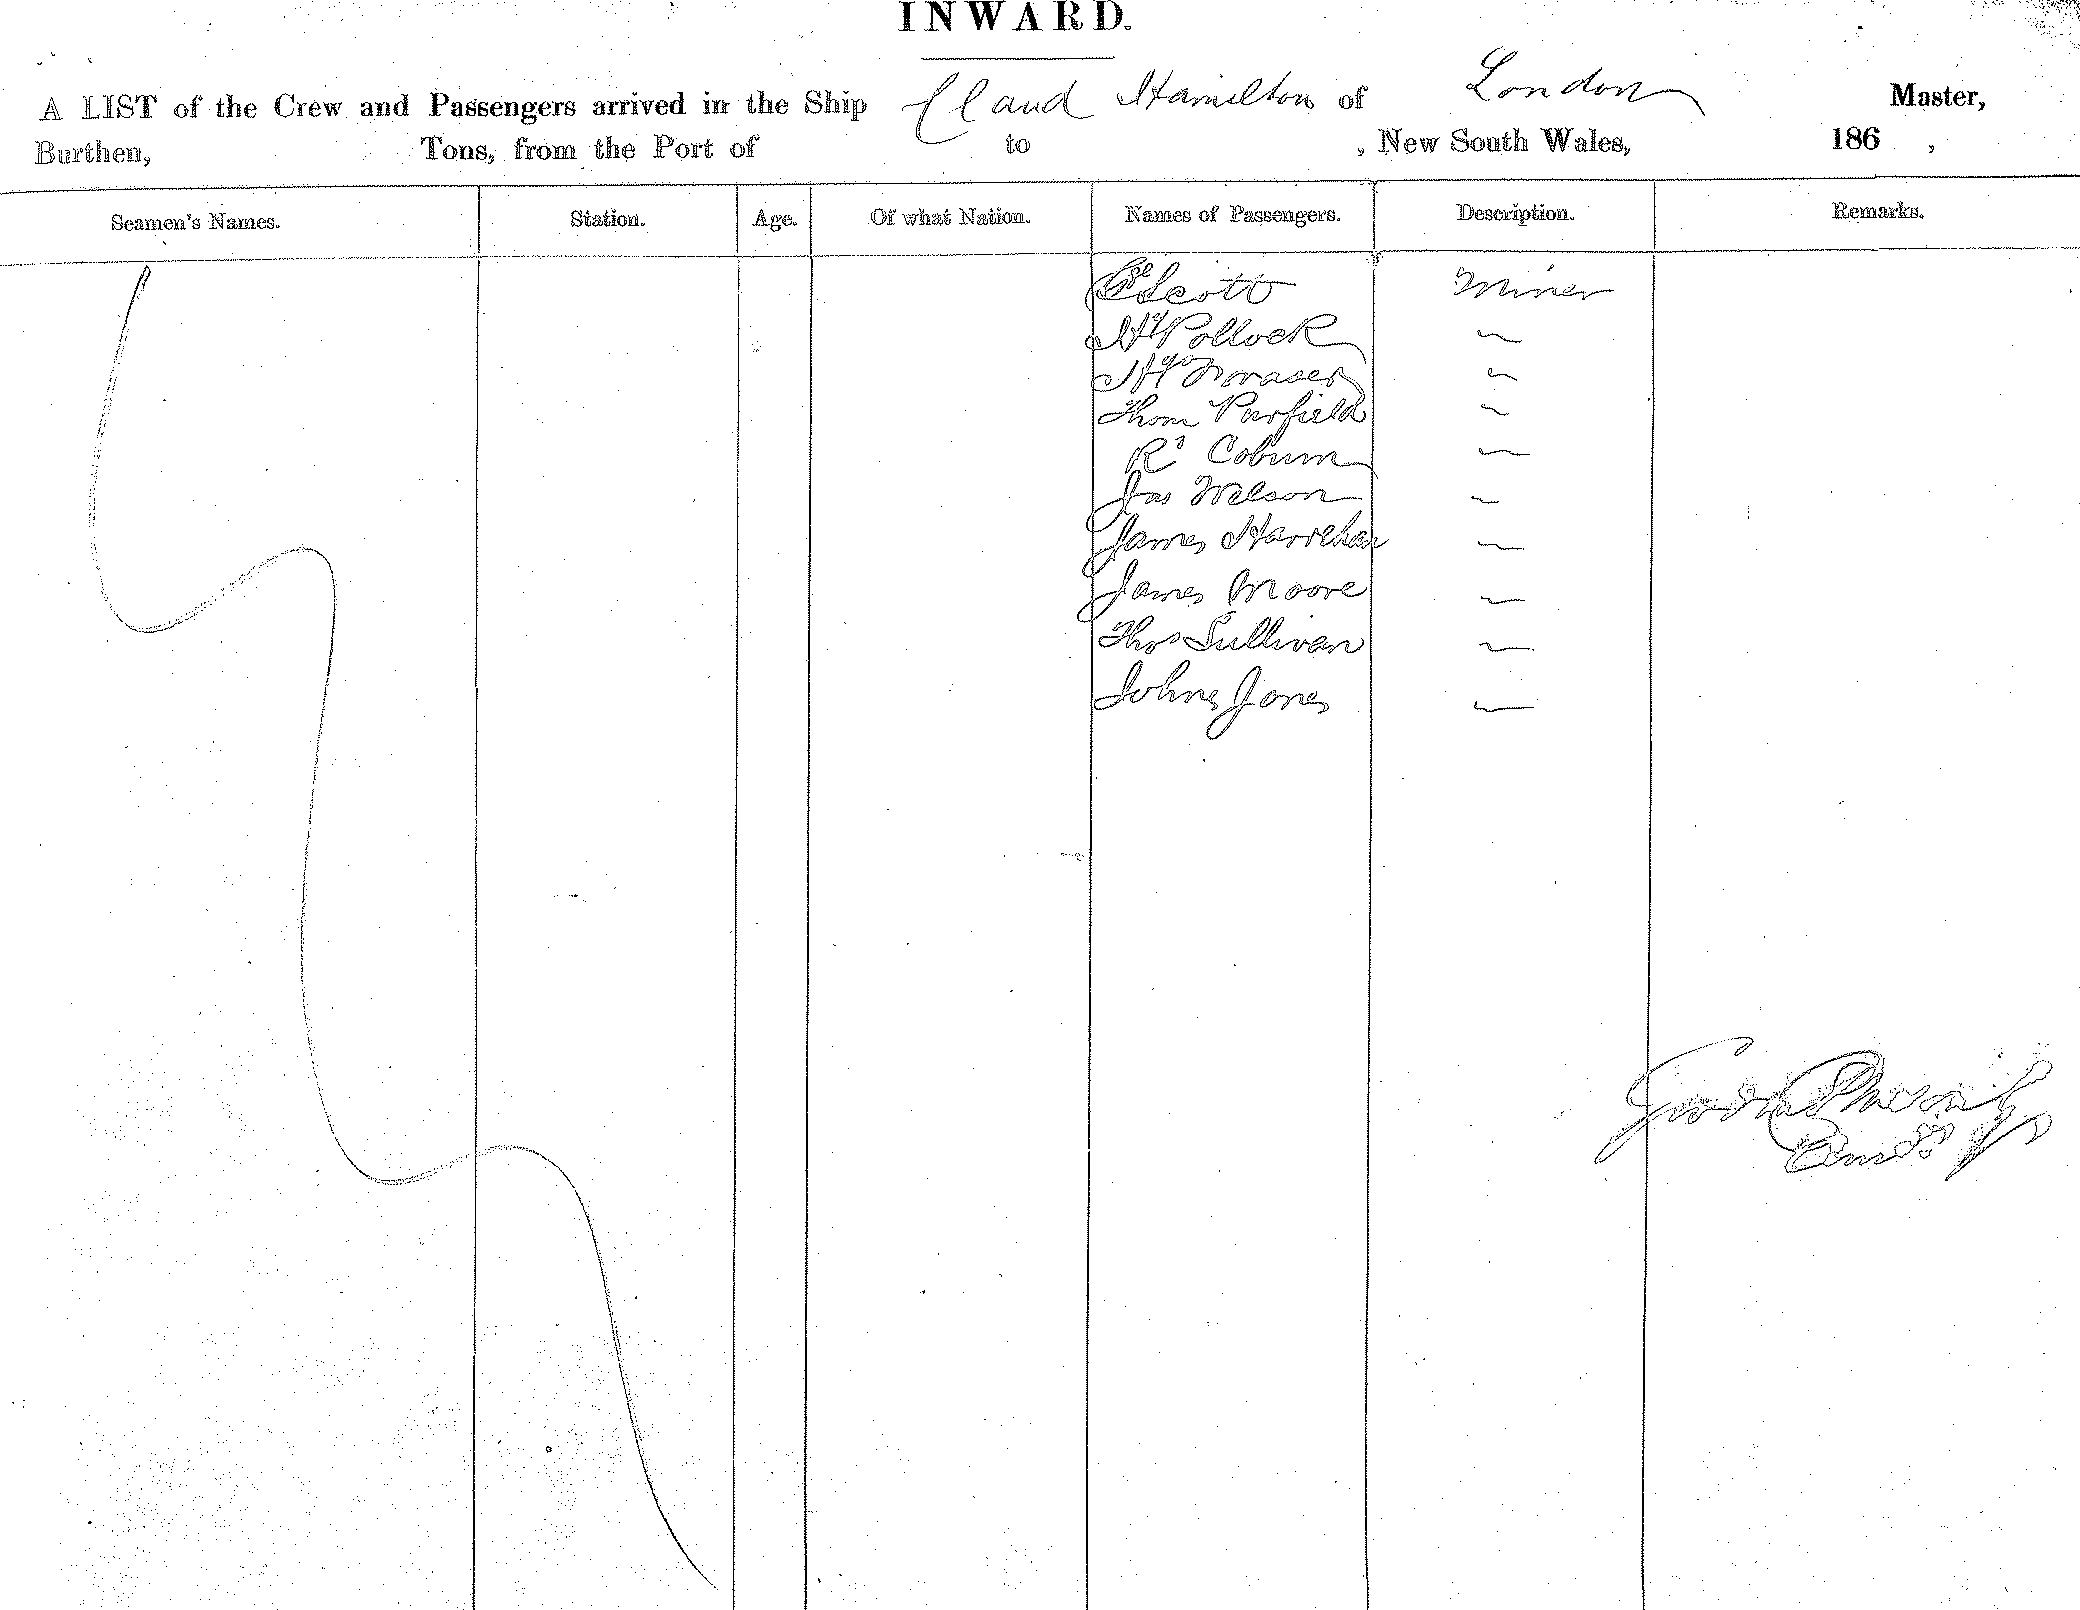 INWARD.
A LIST of the Crew and Passengers arrived in the Ship Claud Hamilton of London Master,
Burthen, Tons, from the Port of to , New South Wales, 186 ,
Seamen's Names. Station. Age. Of what Nation. Names of Passengers. Description. Remarks.
Scott Miner
Hy Pollock
Hy
Thom Purfield
Rt Coburn
Jas Wilson
James Harrehan
James Moore
Thos Sullivan
Johnes Jones